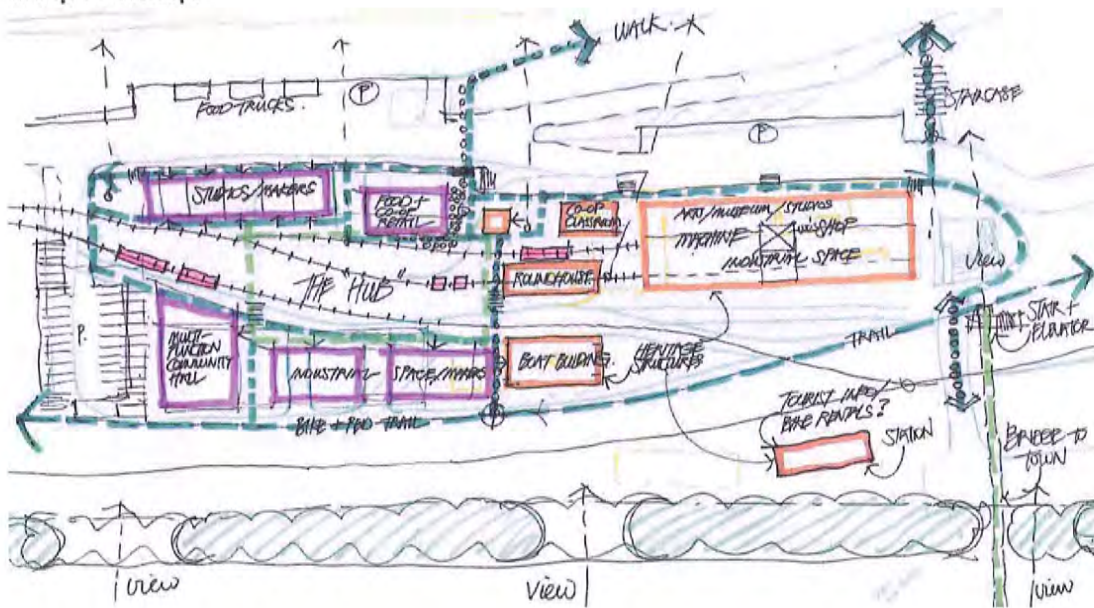 WALK.
FOOD TRUCKS.
P
P
STAIRCASE
STUDIOS/MAKERS
FOOD +
CO-OP
RETAIL
CO-OP
CLASSROOM
ARTS/MUSEUM/STUDIOS
MACHINE SHOP
INDUSTRIAL SPACE
View
"THE HUB"
ROUNDHOUSE
STAIR +
ELEVATOR
P.
MULTI-
FUNCTION
COMMUNITY
HALL
INDUSTRIAL
SPACE/MAKERS
BOAT BUILDING.
HERITAGE
STRUCTURES
TRAIL
BIKE + PED TRAIL
TOURIST INFO/
BIKE RENTALS?
STATION
BRIDGE TO
TOWN
View
View
View